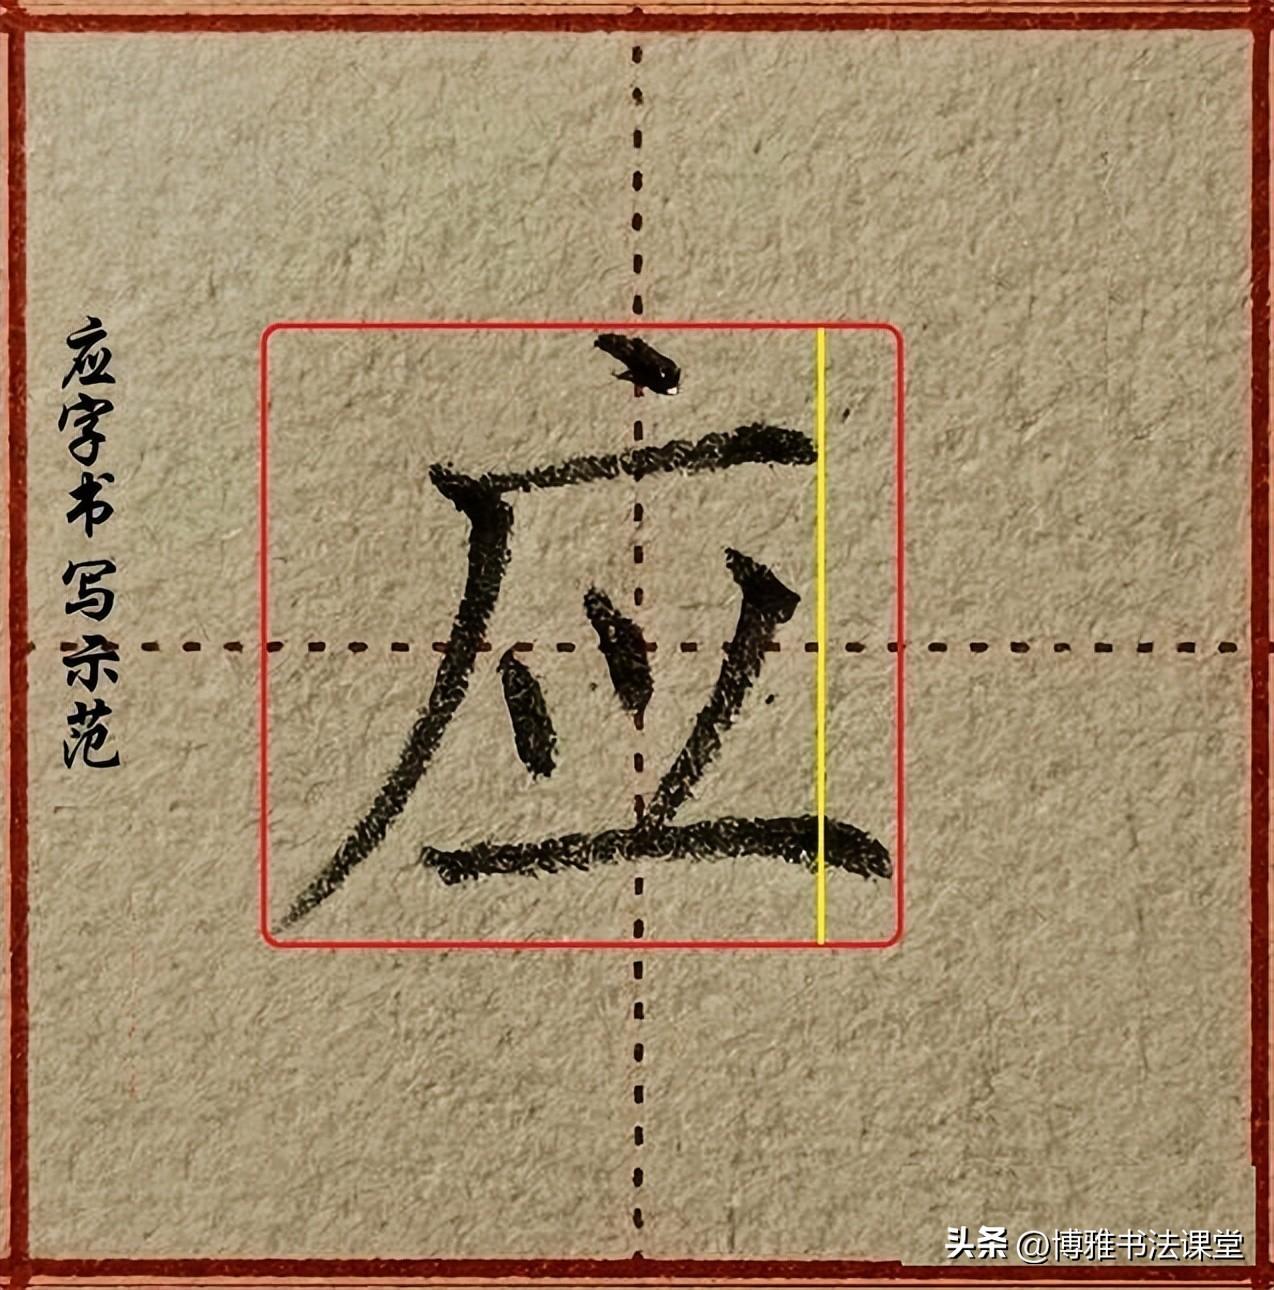 应字书写示范
应
头条 @博雅书法课堂